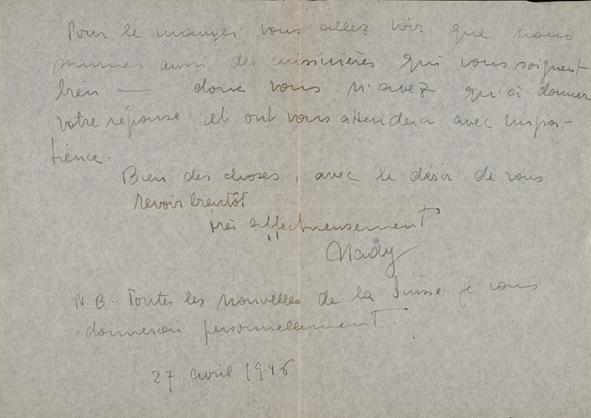 Pour le manger vous allez voir que nous
sommes aussi des cuisinières qui vous soignent
bien — donc vous n'avez qu'à donner
votre réponse et ont vous attendera avec impa-
tience.
Bien des choses, avec le désir de vous
revoir bientôt
très affectueusement
Nady
N.B. Toutes les nouvelles de la Suisse je vous
donnerai personnellement.
27 avril 1946